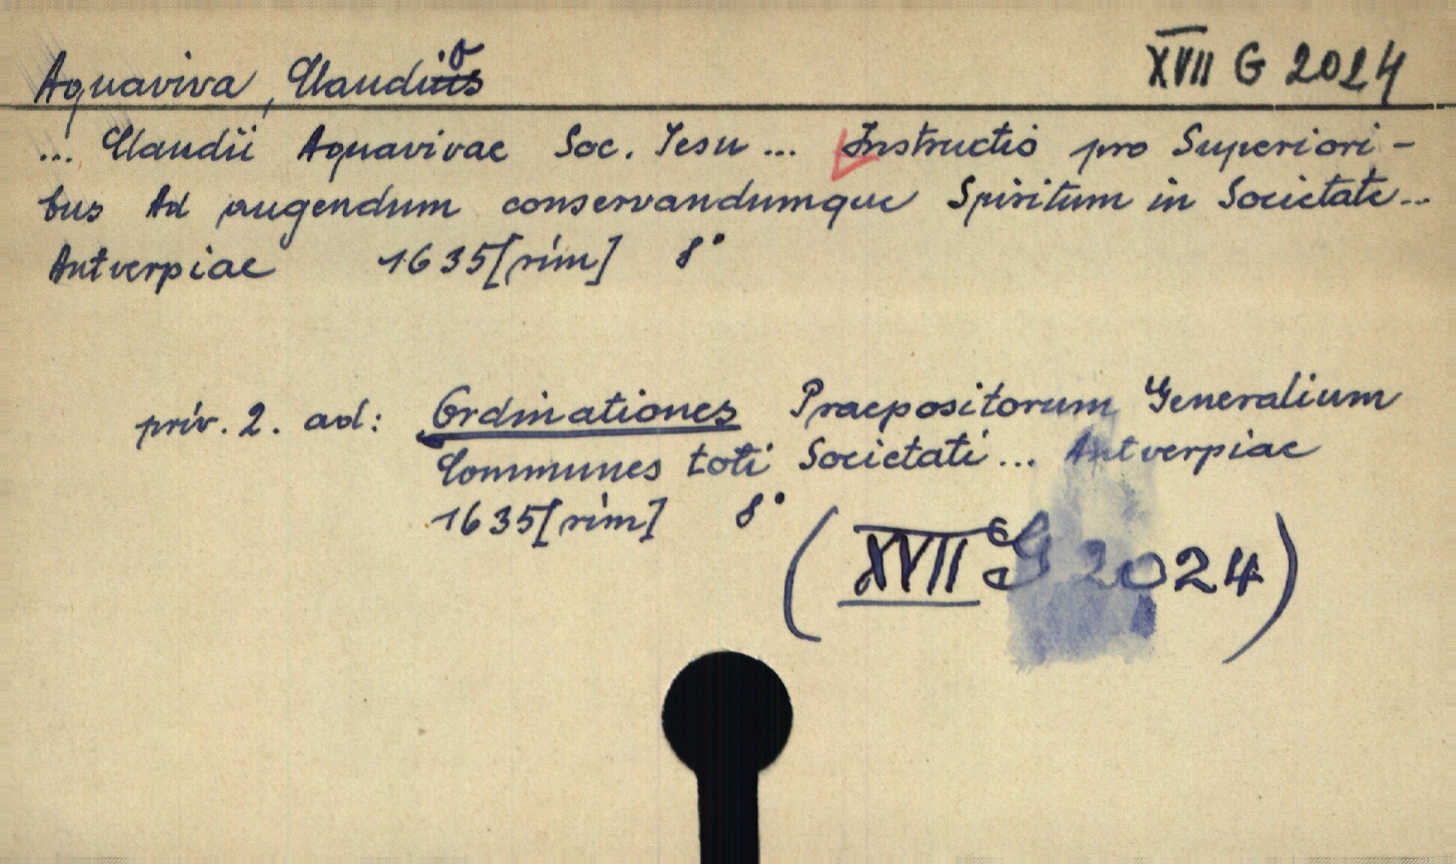 Aquaviva, Claudio
XVII G 2024
... Claudii Aquavivae Soc. Iesu ... Instructio pro Superiori-
bus Ad augendum conservandumque Spiritum in Societate...
Antverpiae 1635[rím] 8°
prív. 2. ad: Ordinationes Praepositorum Generalium
Communes toti Societati... Antverpiae
1635[rím] 8°
(XVII G 2024)